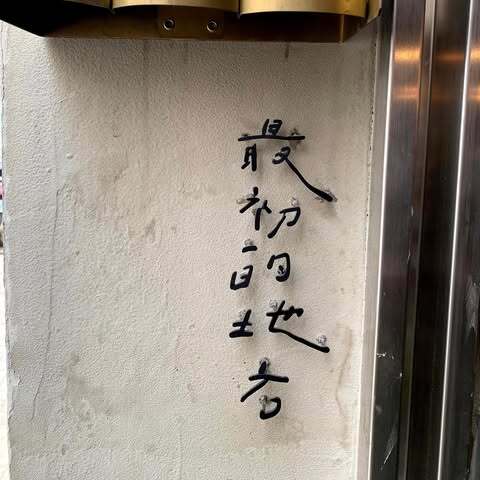 最初的地方